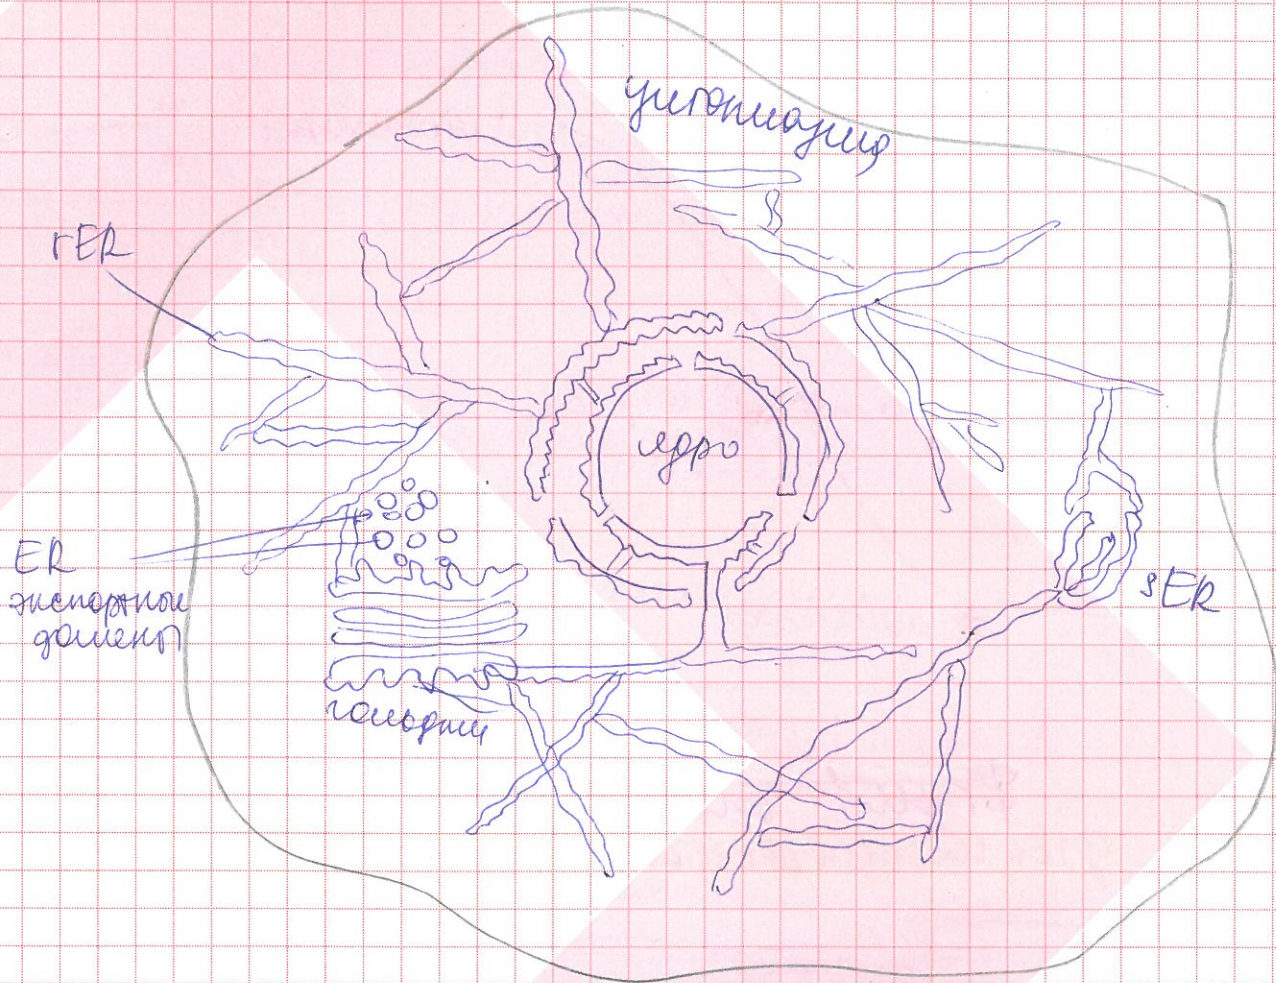 цитоплазма
rER
ядро
ER
экспортные
домены
sER
гольджи